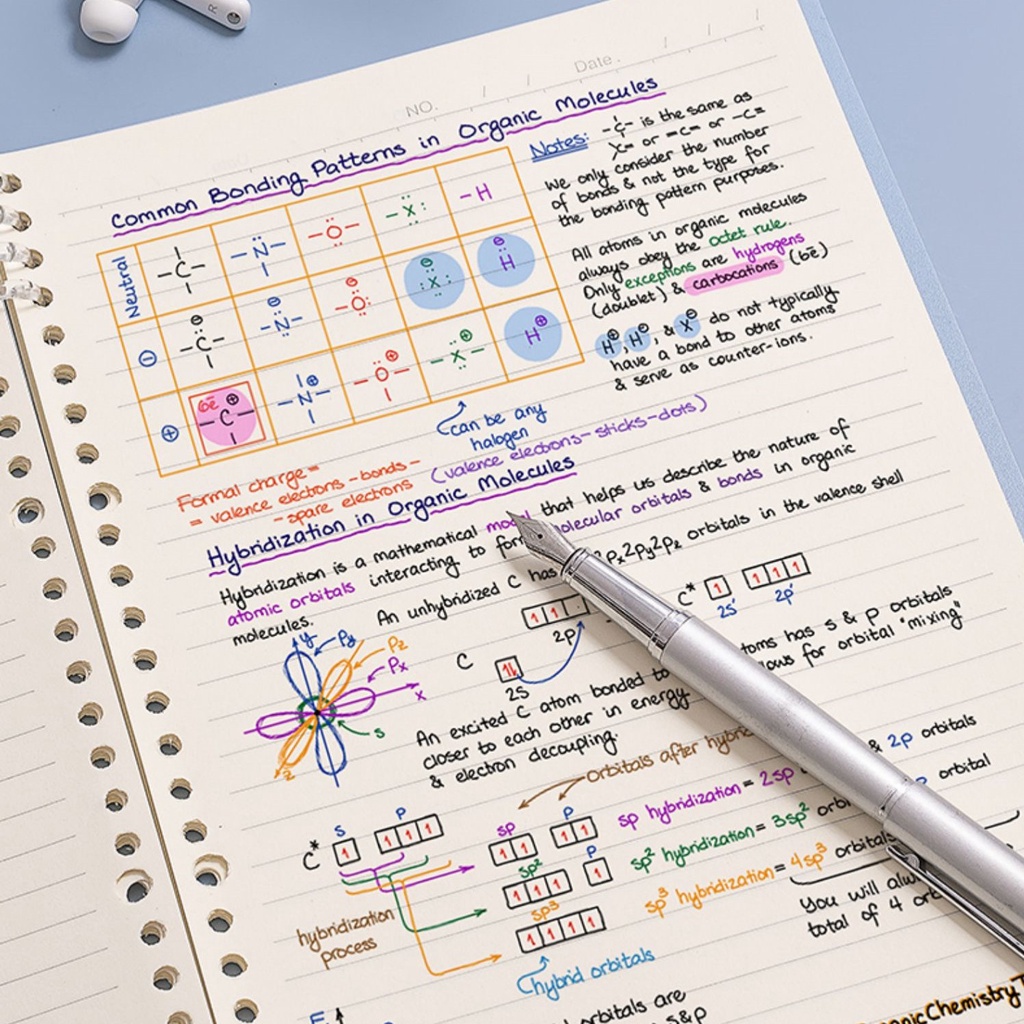 NO.
Date.
Common Bonding Patterns in Organic Molecules
Neutral
-C-
-N-
-Ö-
-X:
-H
⊖
-C-
-N-
-O:
:X:
H
⊕
6e -C-
-N-
-O-
-X-
H⊕
can be any
halogen
Formal charge=
= valence electrons-bonds-
-spare electrons
(valence electrons-sticks-dots)
Notes: -C- is the same as
X= or =C= or -C≡
we only consider the number
of bonds & not the type for
the bonding pattern purposes.
All atoms in organic molecules
always obey the octet rule.
Only exceptions are hydrogens
(doublet) & carbocations (6e)
H⊕, H⊖, & X⊖ do not typically
have a bond to other atoms
& serve as counter-ions.
Hybridization in Organic Molecules
Hybridization is a mathematical that helps us describe the nature of
atomic orbitals interacting to molecular orbitals & bonds in organic
molecules.
An unhybridized C has orbitals in the valence shell
y
Py
Pz
Px
x
s
z
C
2s
2p
C*
2s
2p
An excited C atom bonded to atoms has s & p orbitals
closer to each other in energy for orbital "mixing"
& electron decoupling.
orbitals after
C*
s
p
hybridization
process
sp
p
sp²
p
sp³
hybrid orbitals
sp hybridization = 2sp & 2p orbitals
sp² hybridization = 3sp² orbital
sp³ hybridization = 4sp³ orbitals
You will
total of 4
E
orbitals are
s&p